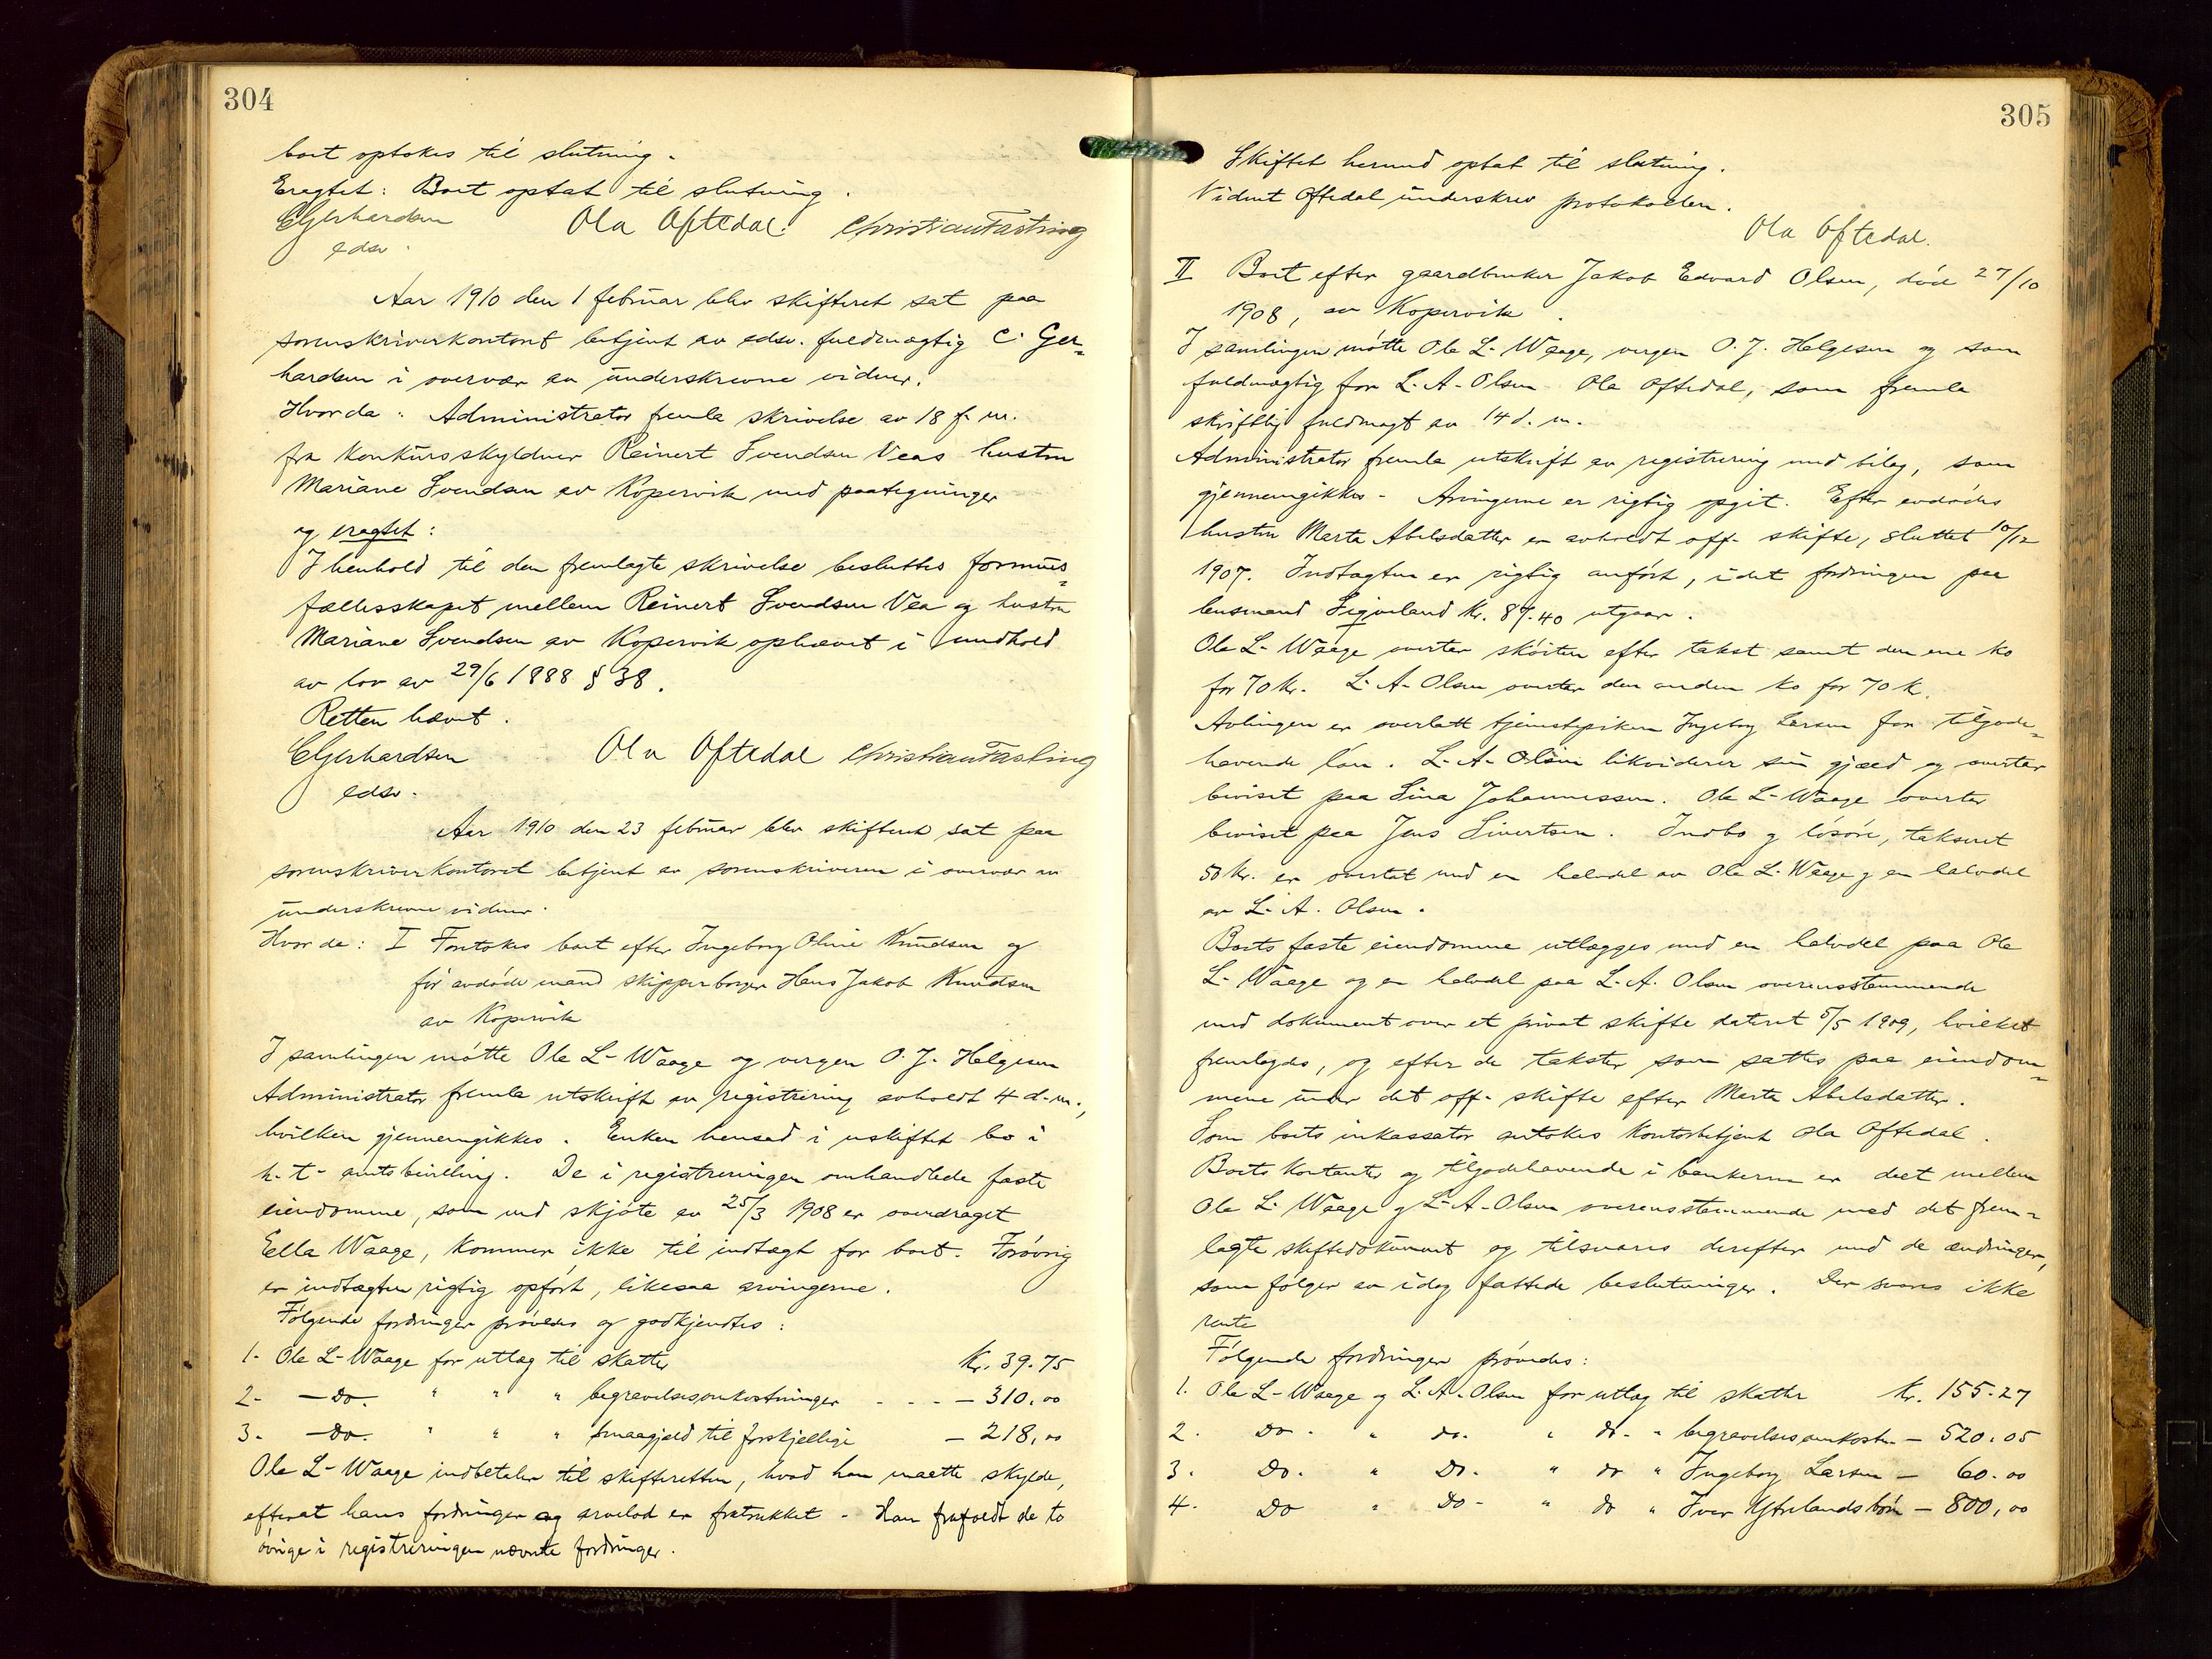 304
boet optokes til slutning.
Eragtet: Boet optat til slutning.
CGerhardsen Ola Oftedal. Christian Fasting
edsv.
Aar 1910 den 1 februar blev skifteret sat paa
sorenskriverkontoret betjent av edsv. fuldmægtig C. Ger-
hardsen i overvær av underskrevne vidner.
Hvor da: Administrator fremla skrivelse av 18 f. m.
fra konkursskyldner Reinert Svendsen Veas hustru
Mariane Svendsen av Kopervik med paategninger
og eragtet:
I henhold til den fremlagte skrivelse besluttes formues-
fællesskapet mellem Reinert Svendsen Vea og hustru
Mariane Svendsen av Kopervik ophævet i medhold
av lov av 29/6 1888 § 38.
Retten hævet.
CGerhardsen Ola Oftedal Christian Fasting
edsv.
Aar 1910 den 23 februar blev skifteret sat paa
sorenskriverkontoret betjent av sorenskriveren i overvær av
underskrevne vidner.
Hvor da: I Foretokes boet efter Ingeborg Oline Knudsen og
før avdøde mand skipperborger Hans Jakob Knudsen
av Kopervik
I samlingen møtte Ole L. Waage og vergen O. J. Helgesen
Administrator fremla utskrift av registrering avholdt 4 d. m.,
hvilken gjennemgikkes. Enken hensad i uskiftet bo i
h. t. amtsbevilling. De i registreringen omhandlede faste
eiendomme, som ved skjøte av 25/3 1908 er overdraget
Eella Waage, kommer ikke til indtægt for boet. Forøvrig
er indtægten rigtig opført, likesaa arvingerne.
Følgende fordringer prøvedes og godkjendtes:
1. Ole L. Waage for utlæg til skatter Kr. 39.75
2. —Do. " " " begravelsesomkostninger - - - — 310,00
3. —Do. " " " smaagjæld til forskjellige — 218,00
Ole L. Waage indbetaler til skifteretten, hvad han maatte skylde,
efterat hans fordringer og arvelod er fratrukket. Han frafaldt de to
øvrige i registreringen nævnte fordringer.
305
Skiftet hermed optat til slutning.
Vidnet Oftedal underskrev protokollen.
Ola Oftedal.
II Boet efter gaardbruker Jakob Edvard Olsen, død 27/10
1908, av Kopervik.
I samlingen møtte Ole L. Waage, vergen O. J. Helgesen og som
fuldmægtig for L. A. Olsen Ola Oftedal, som fremla
skriftlig fuldmagt av 14 d. m.
Administrator fremla utskrift av registrering med bilag, som
gjennemgikkes. Arvingerne er rigtig opgit. Efter avdødes
hustru Marta Abelsdatter er avholdt off. skifte, sluttet 10/12
1907. Indtægten er rigtig anført, idet fordringen paa
lensmand Sigveland Kr. 87.40 utgaar.
Ole L. Waage overtar skøiten efter takst samt den ene ko
for 70 kr. L. A. Olsen overtar den anden ko for 70 k.
Avlingen er overlatt tjenestepiken Ingeborg Larsen for tilgode-
havende løn. L. A. Olsen likviderer sin gjæld og overtar
beviset paa Sina Johannessen. Ole L. Waage overtar
beviset paa Jens Sivertsen. Indbo og løsøre, takseret
50 kr. er overtat med en halvdel av Ole L. Waage og en halvdel
av L. A. Olsen.
Boets faste eiendomme utlægges med en halvdel paa Ole
L. Waage og en halvdel paa L. A. Olsen overensstemmende
med dokument over et privat skifte dateret 5/5 1909, hvilket
fremlagdes, og efter de takster som sattes paa eiendom-
mene under det off. skifte efter Marta Abelsdatter.
Som boets inkassator antokes kontorbetjent Ola Oftedal.
Boets kontanter og tilgodehavende i bankerne er delt mellem
Ole L. Waage og L. A. Olsen overensstemmende med det frem-
lagte skiftedokument og tilsvares derefter med de ændringer,
som følger av idag fattede beslutninger. Der svares ikke
rente
Følgende fordringer prøvedes:
1. Ole L. Waage og L. A. Olsen for utlæg til skatter Kr. 155.27
2. Do. " do. " do. " begravelsesomkostn. — 520.05
3. Do. " Do. " do " Ingeborg Larsen — 60.00
4. Do " Do. " do " Iver Ytrelands bøn — 800,00